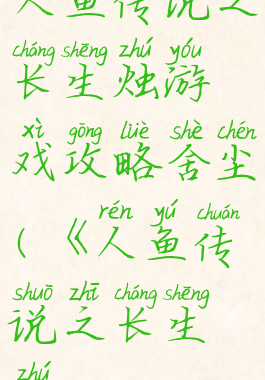 人鱼传说之
cháng shēng zhú yóu
长生烛游
xì gōng lüè shè chén
戏攻略舍尘
rén yú chuán
(《人鱼传
shuō zhī cháng shēng
说之长生
zhú